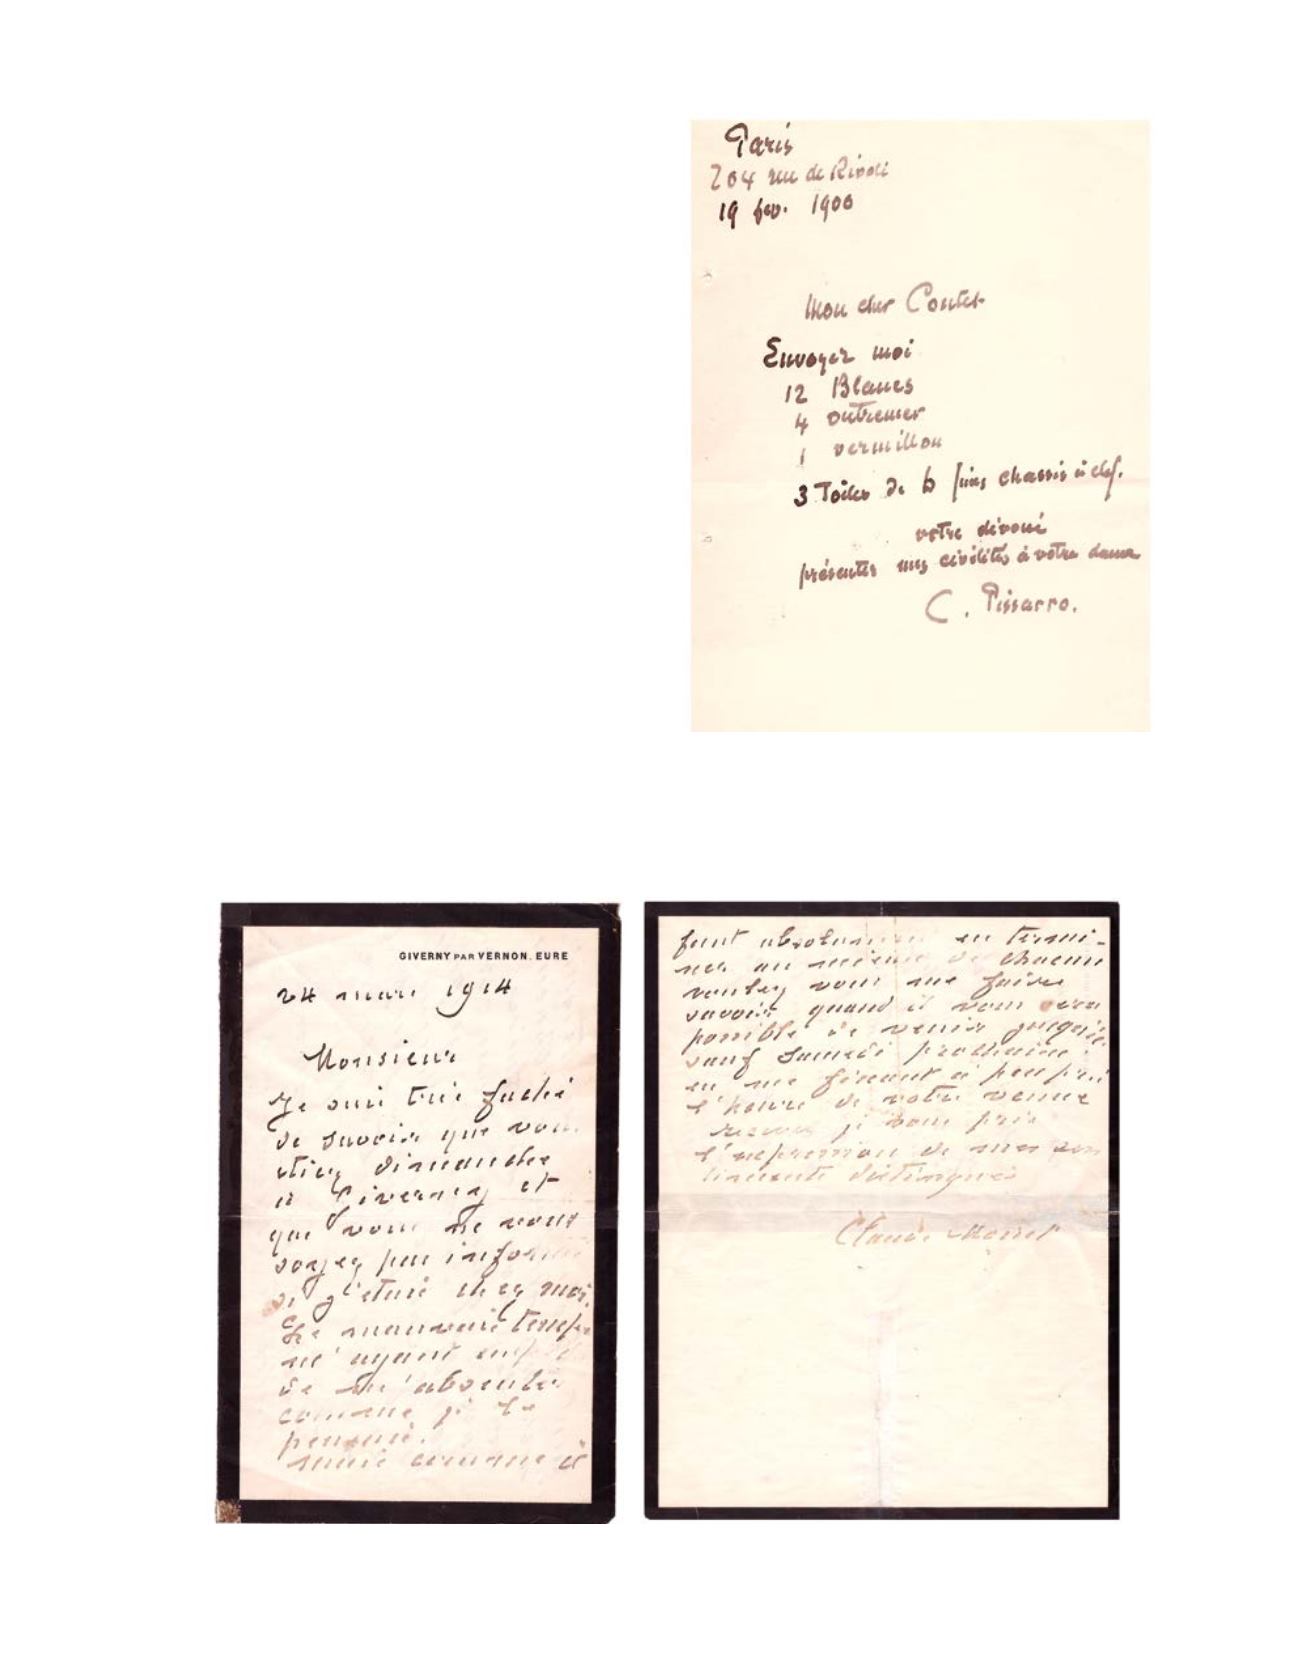 Paris
204 rue de Rivoli
19 fev. 1900
Mon cher Contet
Envoyez moi
12 Blancs
4 outremer
1 vermillon
3 Toiles de 6 fines chassis à clef.
votre dévoué
présentez mes civilités à votre dame
C. Pissarro.
GIVERNY PAR VERNON. EURE
24 mars 1914
Monsieur
Je suis très faché
de savoir que vous
étiez dimanche
à Giverny et
que vous ne vous
soyez pas informé
si j'étais chez moi.
Le mauvais temps
m'ayant
de m'absenter
comme je le
pensais.
mais comme il
faut absolument en termi-
ner au mieux de chacun
voulez vous me faire
savoir quand il vous sera
possible de venir jusqu'ici
sauf Samedi prochain.
en me fixant à peu près
l'heure de votre venue
recevez je vous prie
l'expression de mes sen
timents distingués
Claude Monet